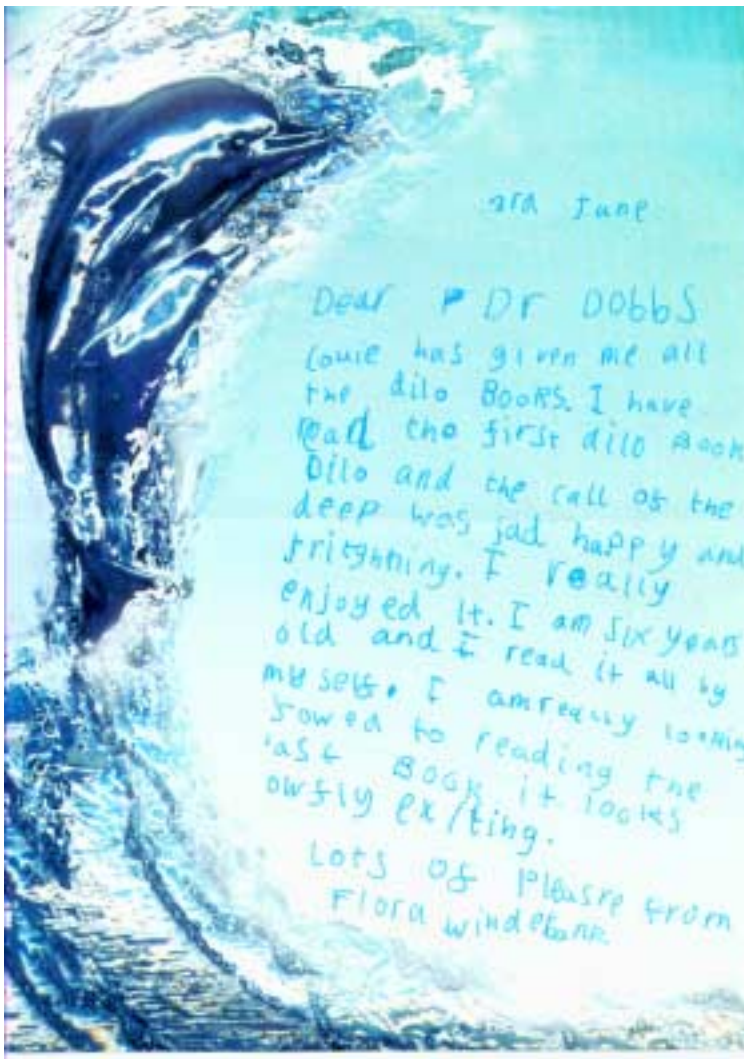 3rd June
Dear Dr Dobbs
Louie has given me all
the dilo BOOKS. I have
read the first dilo BOOK
Dilo and the call of the
deep was sad happy and
frightning. I really
enjoyed it. I am six years
old and I read it all by
my self. I am really looking
fowed to reading the
last BOOK it looks
owfly exiting.
Lots of pleasre from
Flora windebank